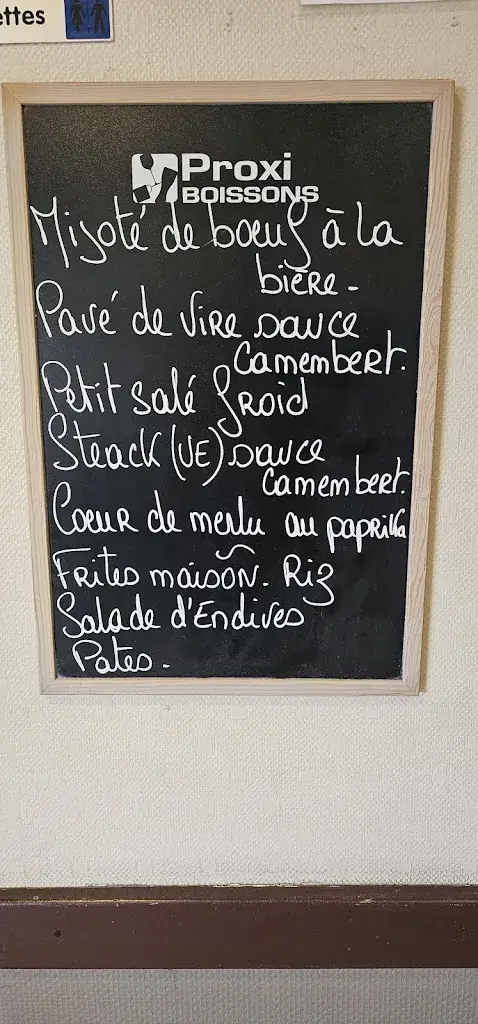 ettes
Proxi
BOISSONS
Mijoté de boeuf à la
bière -
Pavé de Vire sauce
Camembert.
Petit salé froid
Steack (UE) sauce
Camembert.
Coeur de merlu au paprika
~
Frites maison. Riz
Salade d'Endives
Pates.